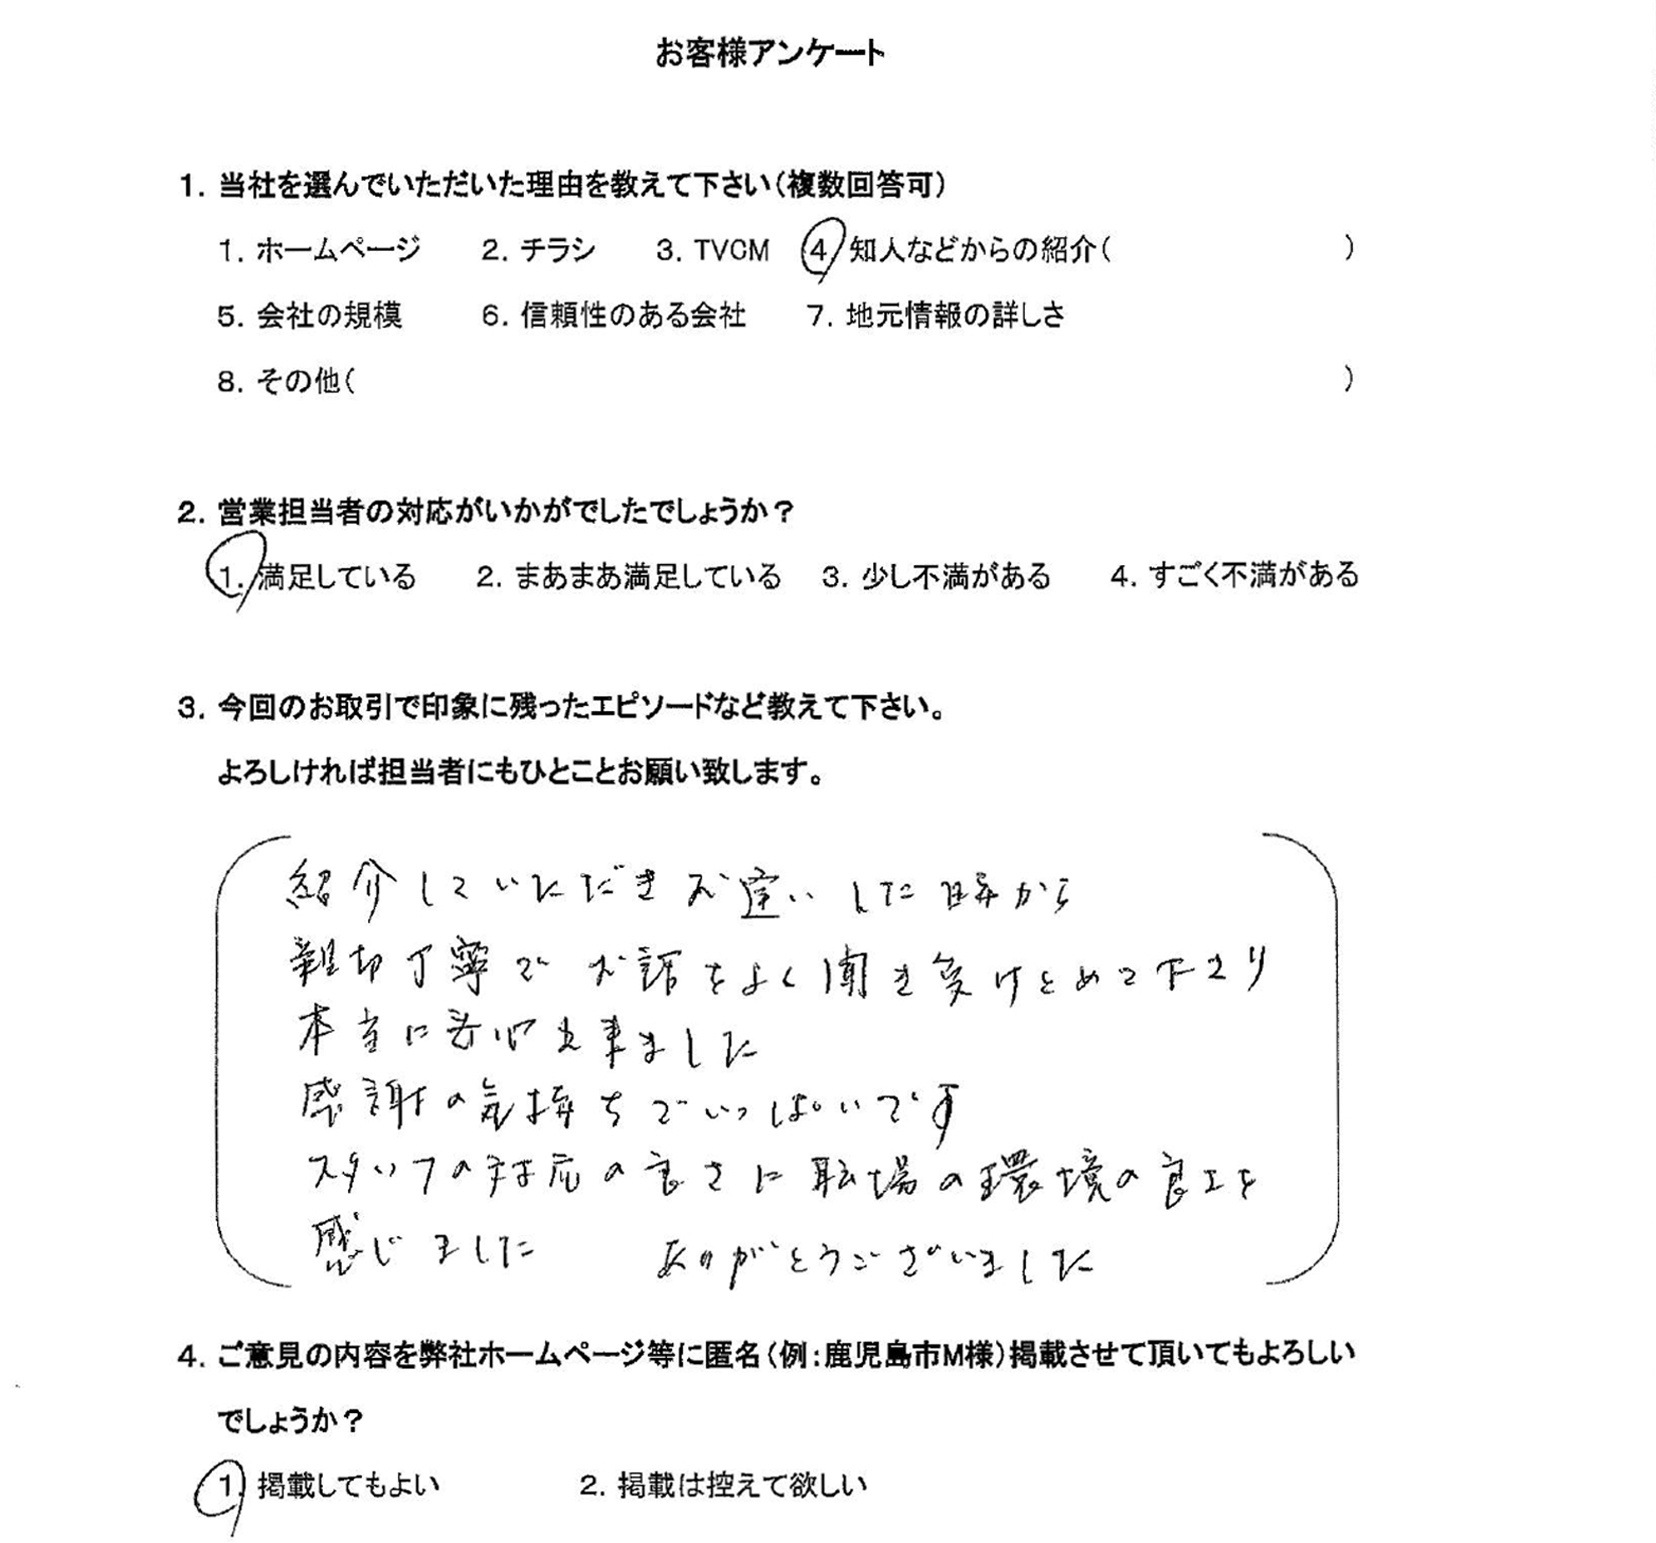 お客様アンケート
1. 当社を選んでいただいた理由を教えて下さい(複数回答可)
1. ホームページ 2. チラシ 3. TVCM 4 知人などからの紹介( )
5. 会社の規模 6. 信頼性のある会社 7. 地元情報の詳しさ
8. その他( )
2. 営業担当者の対応がいかがでしたでしょうか?
1. 満足している 2. まあまあ満足している 3. 少し不満がある 4. すごく不満がある
3. 今回のお取引で印象に残ったエピソードなど教えて下さい。
よろしければ担当者にもひとことお願い致します。
紹介していただきお逢いした時から
親切丁寧でお話をよく聞き受けとめて下さり
本当に安心出来ました
感謝の気持ちでいっぱいです
スタッフの対応の良さに職場の環境の良さを
感じました ありがとうございました
4. ご意見の内容を弊社ホームページ等に匿名(例:鹿児島市M様)掲載させて頂いてもよろしい
でしょうか?
1. 掲載してもよい 2. 掲載は控えて欲しい